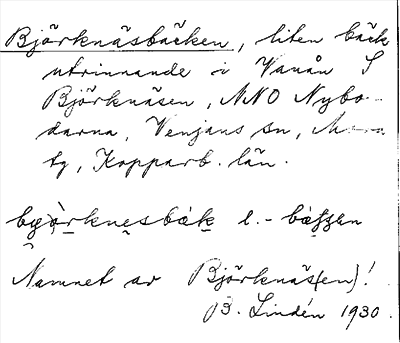 Björknäsbäcken, liten bäck
utrinnande i Vanån S
Björknäsen, NNO Nybo-
darna, Venjans sn, Mora
tg, Kopparb. län.
l. -
Namnet av Björknäs(en)!
B. Lindén 1930.